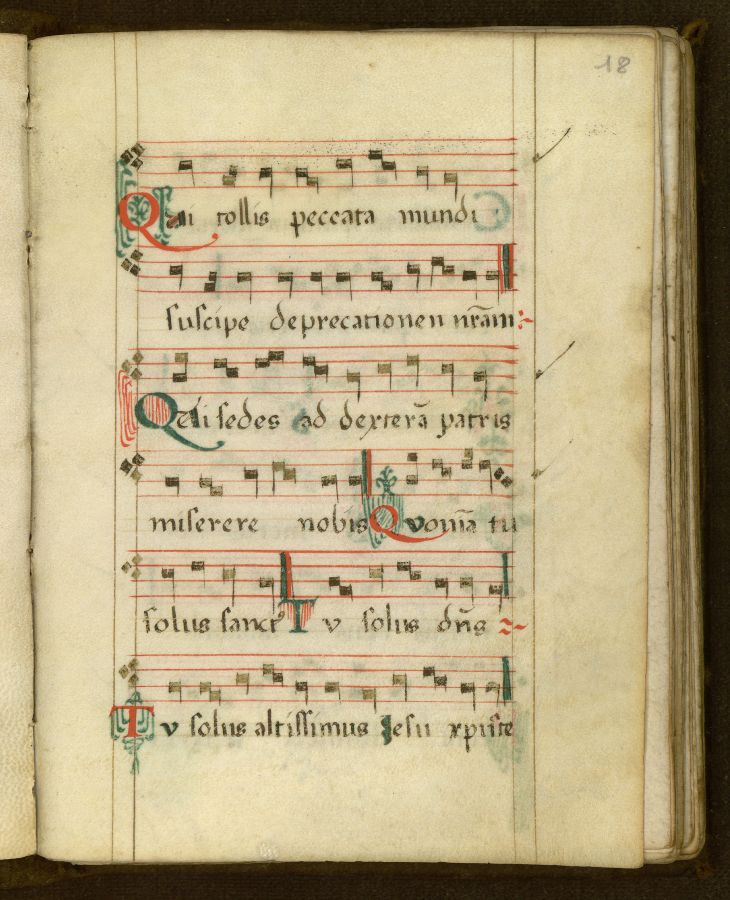 18
Qui tollis peccata mundi
suscipe deprecationen nr̃am
Qui sedes ad dexterã patris
miserere nobis Quoniã tu
solus sanctꝰ Tu solus dñs
Tu solus altissimus Jesu xpiste